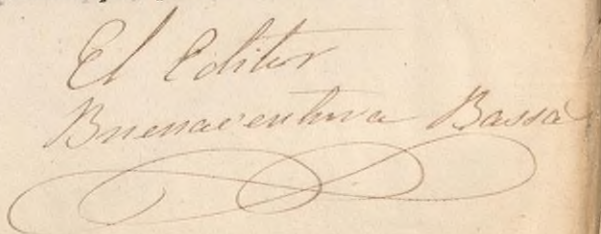 El Editor
Buenaventura Bassa